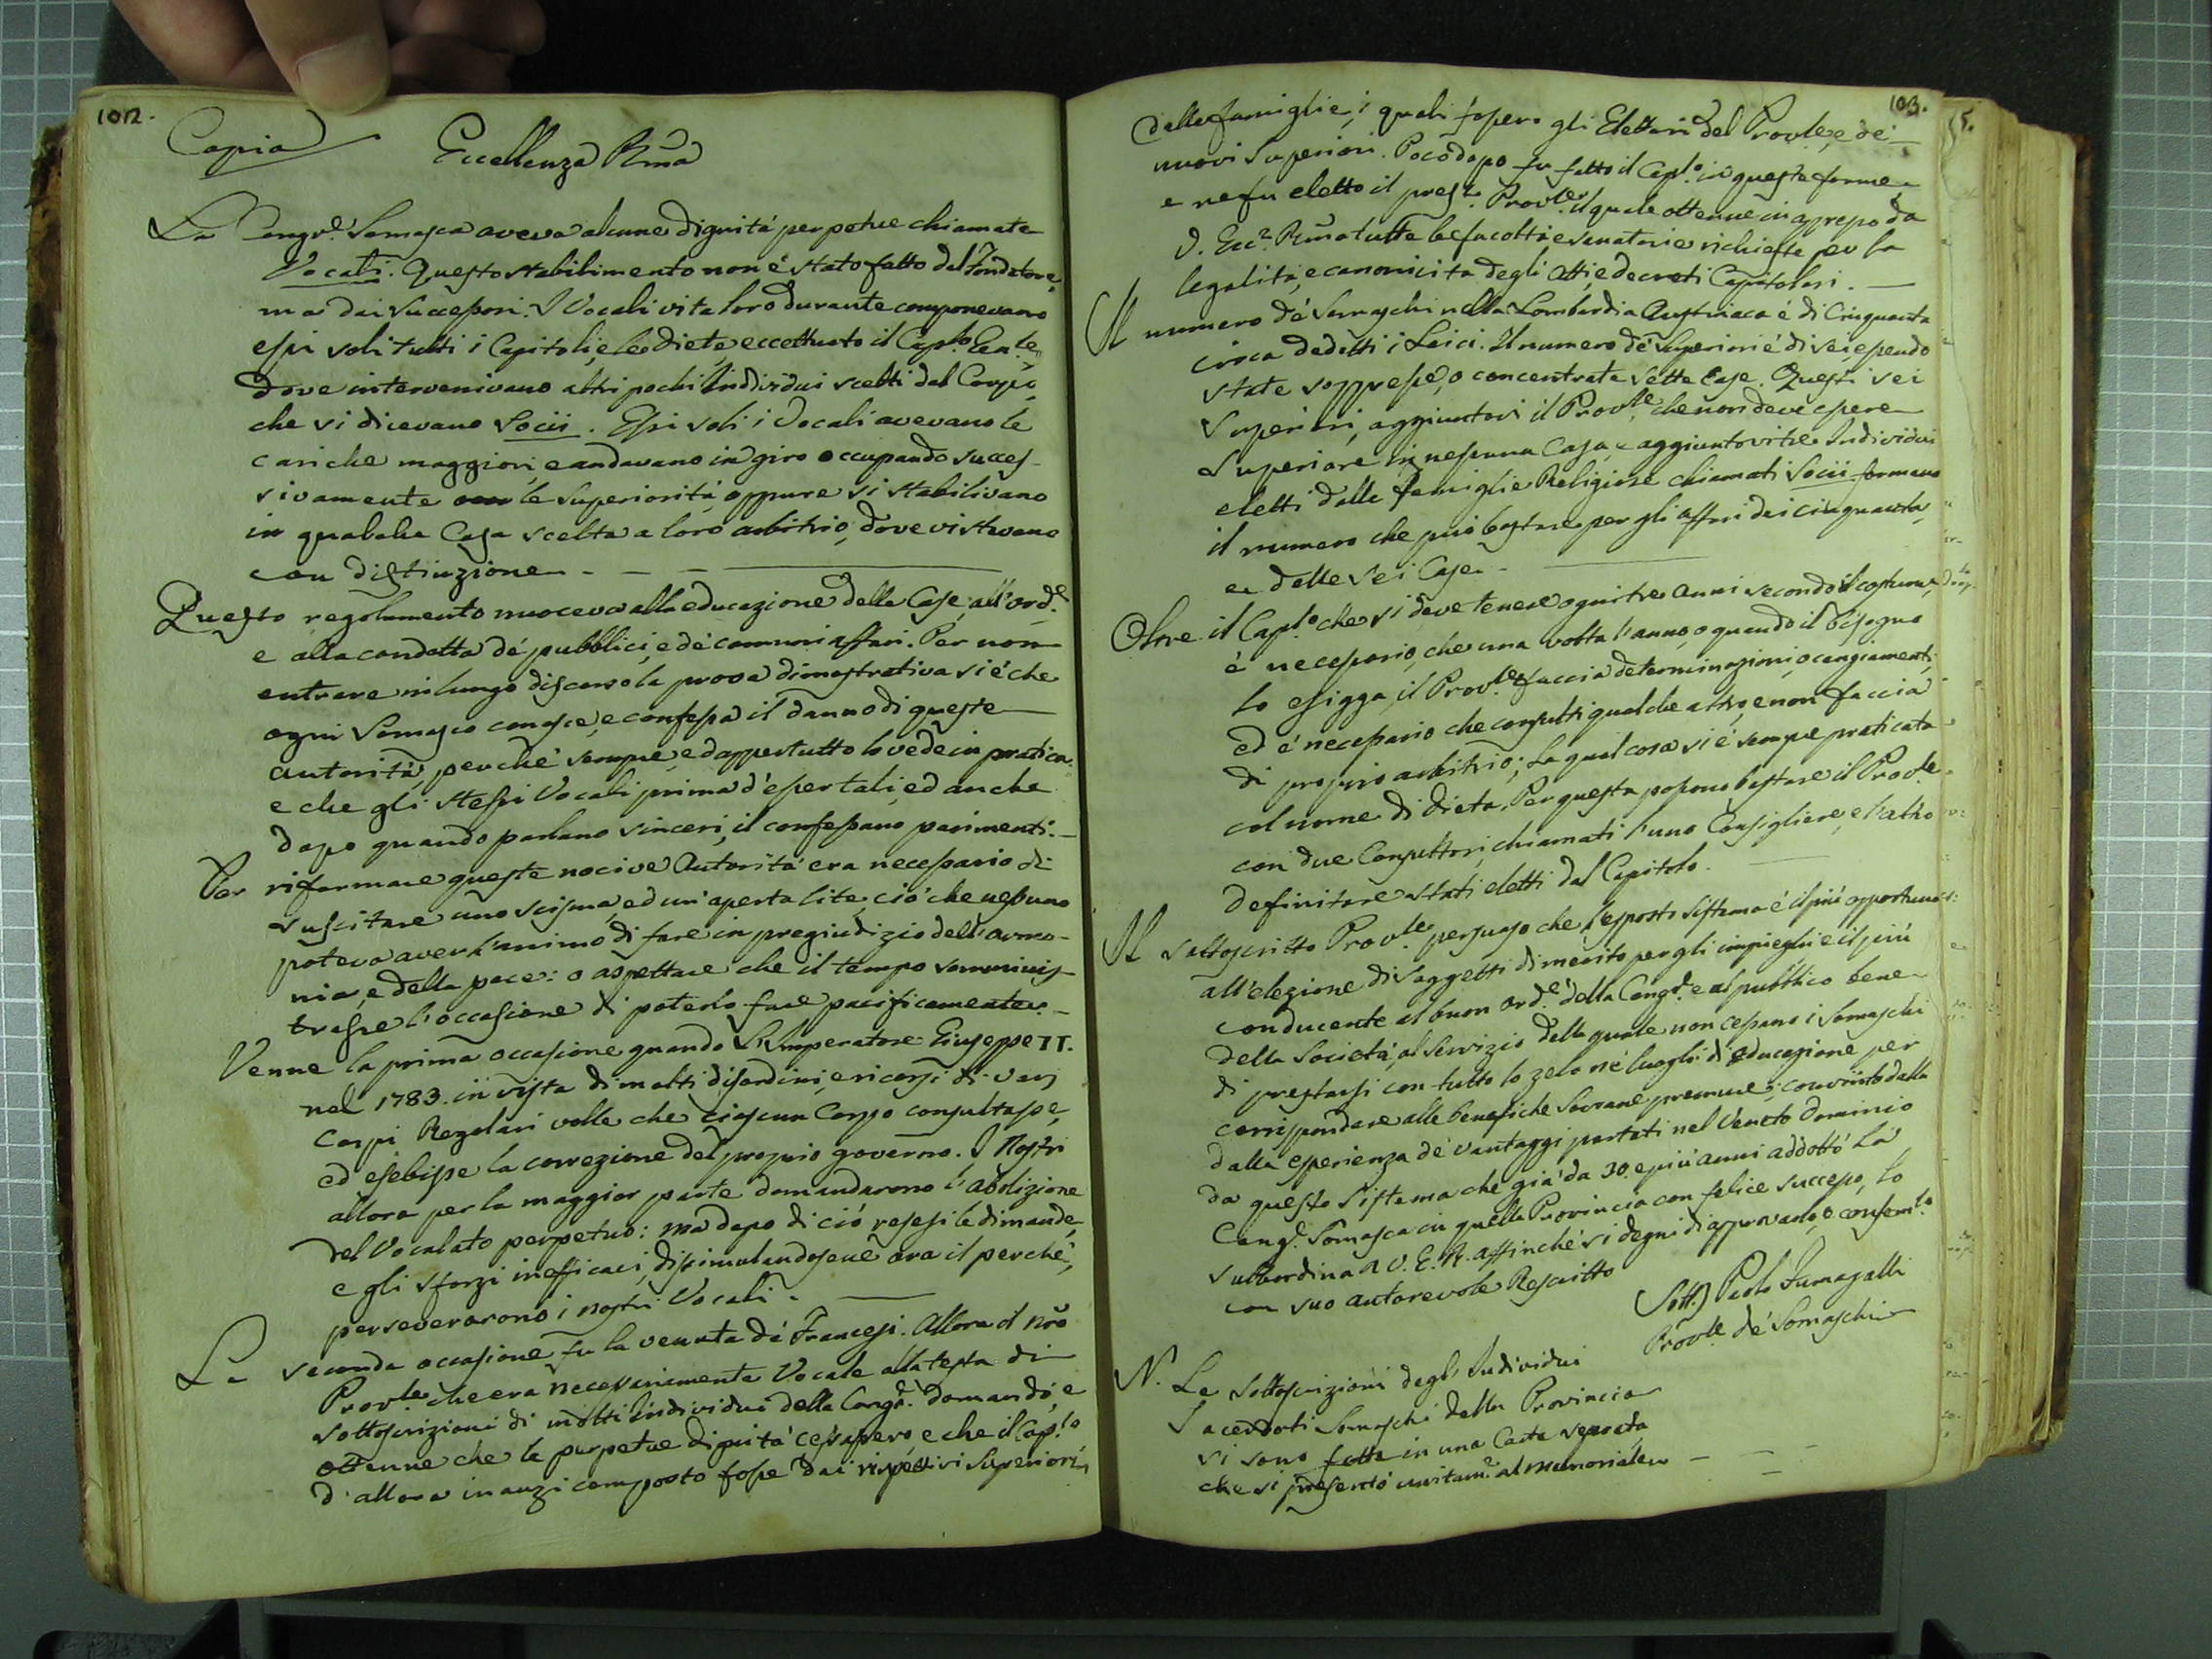 102.
Copia
Eccellenza Rma
La Congne. Somasca aveva alcune dignità perpetue chiamate
Vocali. Questo stabilimento non é stato fatto dal Fondatore,
ma dai Successori. I Vocali vita loro durante componevano
essi soli tutti i Capitoli, e le Diete, eccettuato il Caplo. Genle,
dove intervenivano altri pochi Individui scelti dal Corpo,
che si dicevano Socii. Essi soli i Vocali avevano le
cariche maggiori, e andavano in giro occupando succes-
sivamente le Superiorità, oppure si stabilivano
in qualche Casa scelta a loro arbitrio, dove vi stavano
con distinzione.
Questo regolamento nuoceva alla educazione delle Case, all'orde.
e alla condotta dé pubblici, e dé comuni affari. Per non
entrare in lungo discorso la prova dimostrativa si é che
ogni Somasco conosce, e confessa il danno di queste
autorità, perché sempre, e dappertutto lo vede in pratica.
e che gli stessi Vocali prima d'esser tali, ed anche
dopo quando parlano sinceri, il confessano parimenti.
Per riformare queste nocive Autorità era necessario di
suscitare uno scisma, ed un' aperta lite, ció che nessuno
poteva aver l'animo di fare in pregiudizio dell'armo-
nia, e della pace: o aspettare che il tempo somminis-
trasse l'occasione di poterlo fare pacificamente.
Venne la prima occasione quando L'Imperatore Giuseppe II.
nel 1783. in vista di molti disordini, e ricorsi di varj
Corpi Regolari volle che ciascun Corpo consultasse,
ed esebisse la correzione del proprio governo. I Nostri
allora per la maggior parte domandarono l'abolizione
del Vocalato perpetuo: ma dopo di ció resesi le dimande,
e gli sforzi inefficaci, dissimulandosene ora il perché,
perseverarono i nostri Vocali.
La seconda occasione fu la venuta dé Francesi. Allora il nrõ
Provle. che era necessariamente Vocale alla testa di
sottoscrizioni di molti Individui della Conge. domandó, e
ottenne che le perpetue dignità cessassero, e che il Caplo
d'allora inanzi composto fosse dai rispettivi Superiori,
103.
dalle famiglie, i quali fossero gli Elettori del Provle, e dé
nuovi Superiori. Poco dopo fu fatto il Caplo. in queste forme
e ne fu eletto il prese. Provle. il quale ottenne in appresso da
V. Ecca. Rma tutte le facoltà, e sanatorie richieste per la
legalità, e canonicità degli Atti, e decreti Capitolari.
Il numero dé Somaschi nella Lombardia Austriaca é di Cinquanta
circa dedotti i Laici. Il numero dé Superiori é di sei, essendo
state soppresse, o concentrate sette Case. Questi sei
Superiori, aggiuntovi il Provle. che non deve essere
Superiore in nessuna Casa, e aggiuntovi tre Individui
eletti dalle famiglie Religiose chiamati Socii formano
il numero che può bastare per gli affari dei cinquanta,
e delle sei Case.
Oltre il Caplo. che si deve tenere ogni tre anni secondo il costume,
é necessario, che una volta l'anno, o quando il bisogno
lo esigga, il Provle. faccia determinazioni, o cangiamenti,
ed é necessario che consulti qualche altro, e non faccia
di proprio arbitrio; La qual cosa si é sempre praticata
col nome di Dieta. Per questa possono bastare il Provle.
con due Consultori, chiamati l'uno Consigliere, e l'altro
Definitore stati eletti dal Capitolo.
Il sottoscritto Provle. persuaso che l'esposto Sistema é il piú opportuno
all'elezione di Soggetti di merito per gli impieghi, e il più
conducente al buon orde. della Conge. e al pubblico bene
della Società, al servizio della quale non cessano i Somaschi
di prestarsi con tutto lo zelo né luoghi di educazione per
corrispondere alle benefiche Sovrane premure; convinto dalla
dalla esperienza dé vantaggi portati nel Veneto Dominio
da questo Sistema che già da 30. e piú anni addottó La
Conge. Somasca in quella Provincia con felice successo, lo
subordina A V. E. R. affinché si degni di approvarlo, e confermlo.
con suo autorevole Rescritto
(Sott.) Paolo Fumagalli
Provle. dé Somaschi
N. Le sottoscrizioni degl' Individui
Sacerdoti Somaschi della Provincia
si sono fatte in una Carta separata,
che si presentò unitame. al Memoriale.